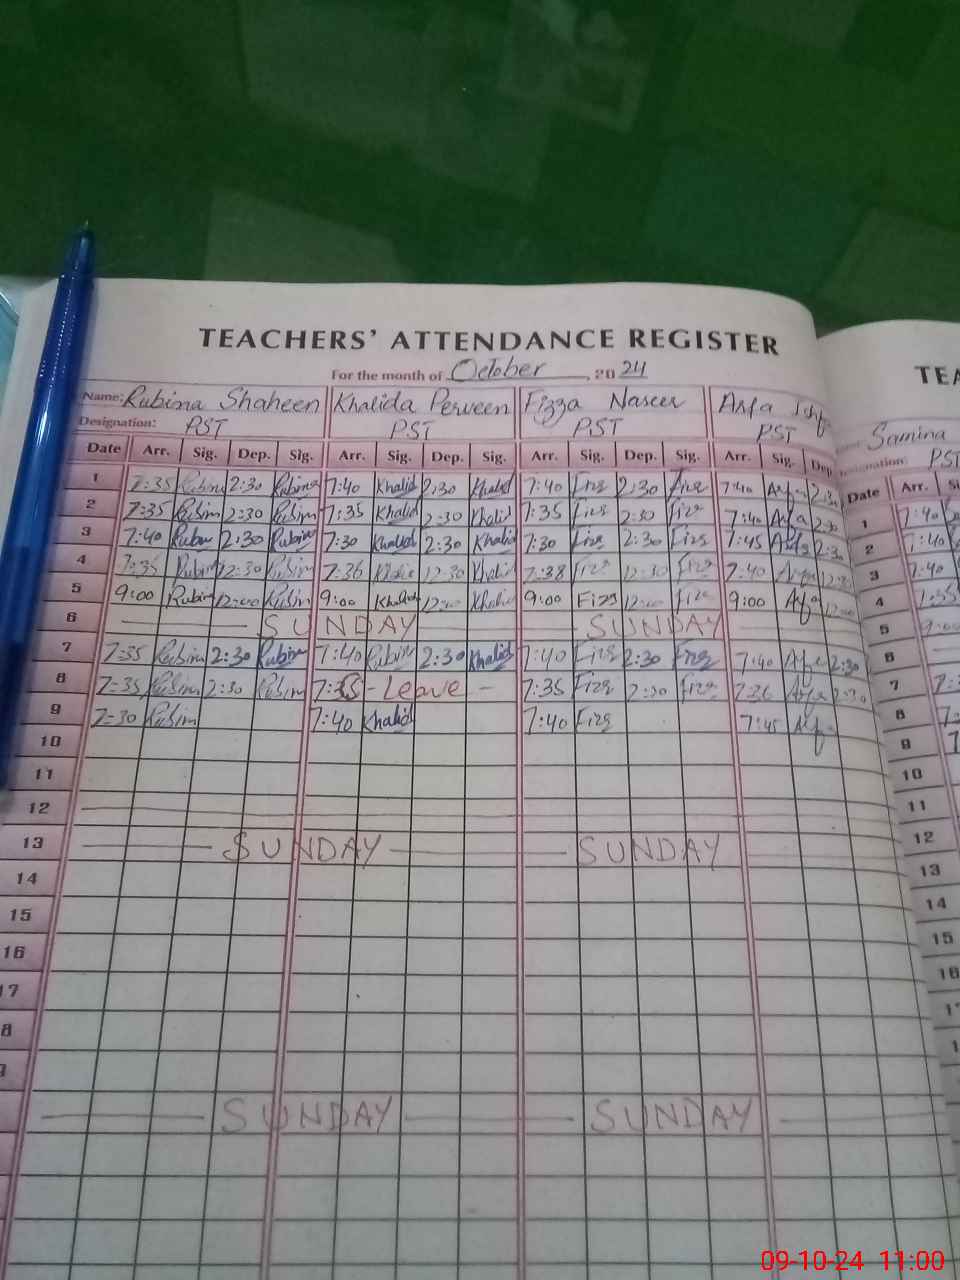 TEACHERS' ATTENDANCE REGISTER
For the month of October 2024
TEA
Name: Rubina Shaheen Khalida Perveen Fizza Naseer Arfa
Samina
Designation: PST PST PST PST
PST
Date Arr. Sig. Dep. Sig. Arr. Sig. Dep. Sig. Arr. Sig. Dep. Sig. Arr. Sig. Dep
Date Arr. S
1 7:35 Rubina 2:30 Rubina 7:40 Khalid 2:30 Khalid 7:40 Fiza 2:30 Fiza 7:40 Arfa 2:30
2 7:35 Rubina 2:30 Rubina 7:35 Khalid 2:30 Khalid 7:35 Fiza 2:30 Fiza 7:40 Arfa 2:30
3 7:40 Rubina 2:30 Rubina 7:30 Khalid 2:30 Khalid 7:30 Fiza 2:30 Fiza 7:45 Arfa 2:30
4 7:35 Rubina 12:30 Rubina 7:36 Khalid 12:30 Khalid 7:38 Fiza 12:30 Fiza 7:40 Arfa 12:30
5 9:00 Rubina 12:00 Rubina 9:00 Khalid 12:00 Khalid 9:00 Fiza 12:00 Fiza 9:00 Arfa 12:00
6 SUNDAY SUNDAY
7 7:35 Rubina 2:30 Rubina 7:40 Rubina 2:30 Khalid 7:40 Fiza 2:30 Fiza 7:40 Arfa 2:30
8 7:35 Rubina 2:30 Rubina 7:35 - Leave - 7:35 Fiza 2:30 Fiza 7:36 Arfa 2:30
9 7:30 Rubina 7:40 Khalid 7:40 Fiza 7:45 Arfa
10
11
12
13 SUNDAY SUNDAY
14
15
16
17
8
SUNDAY SUNDAY
1 7:40
2
3 7:40
4
5 9:00
6
7
8
9
10
11
12
13
14
15
16
09-10-24 11:00